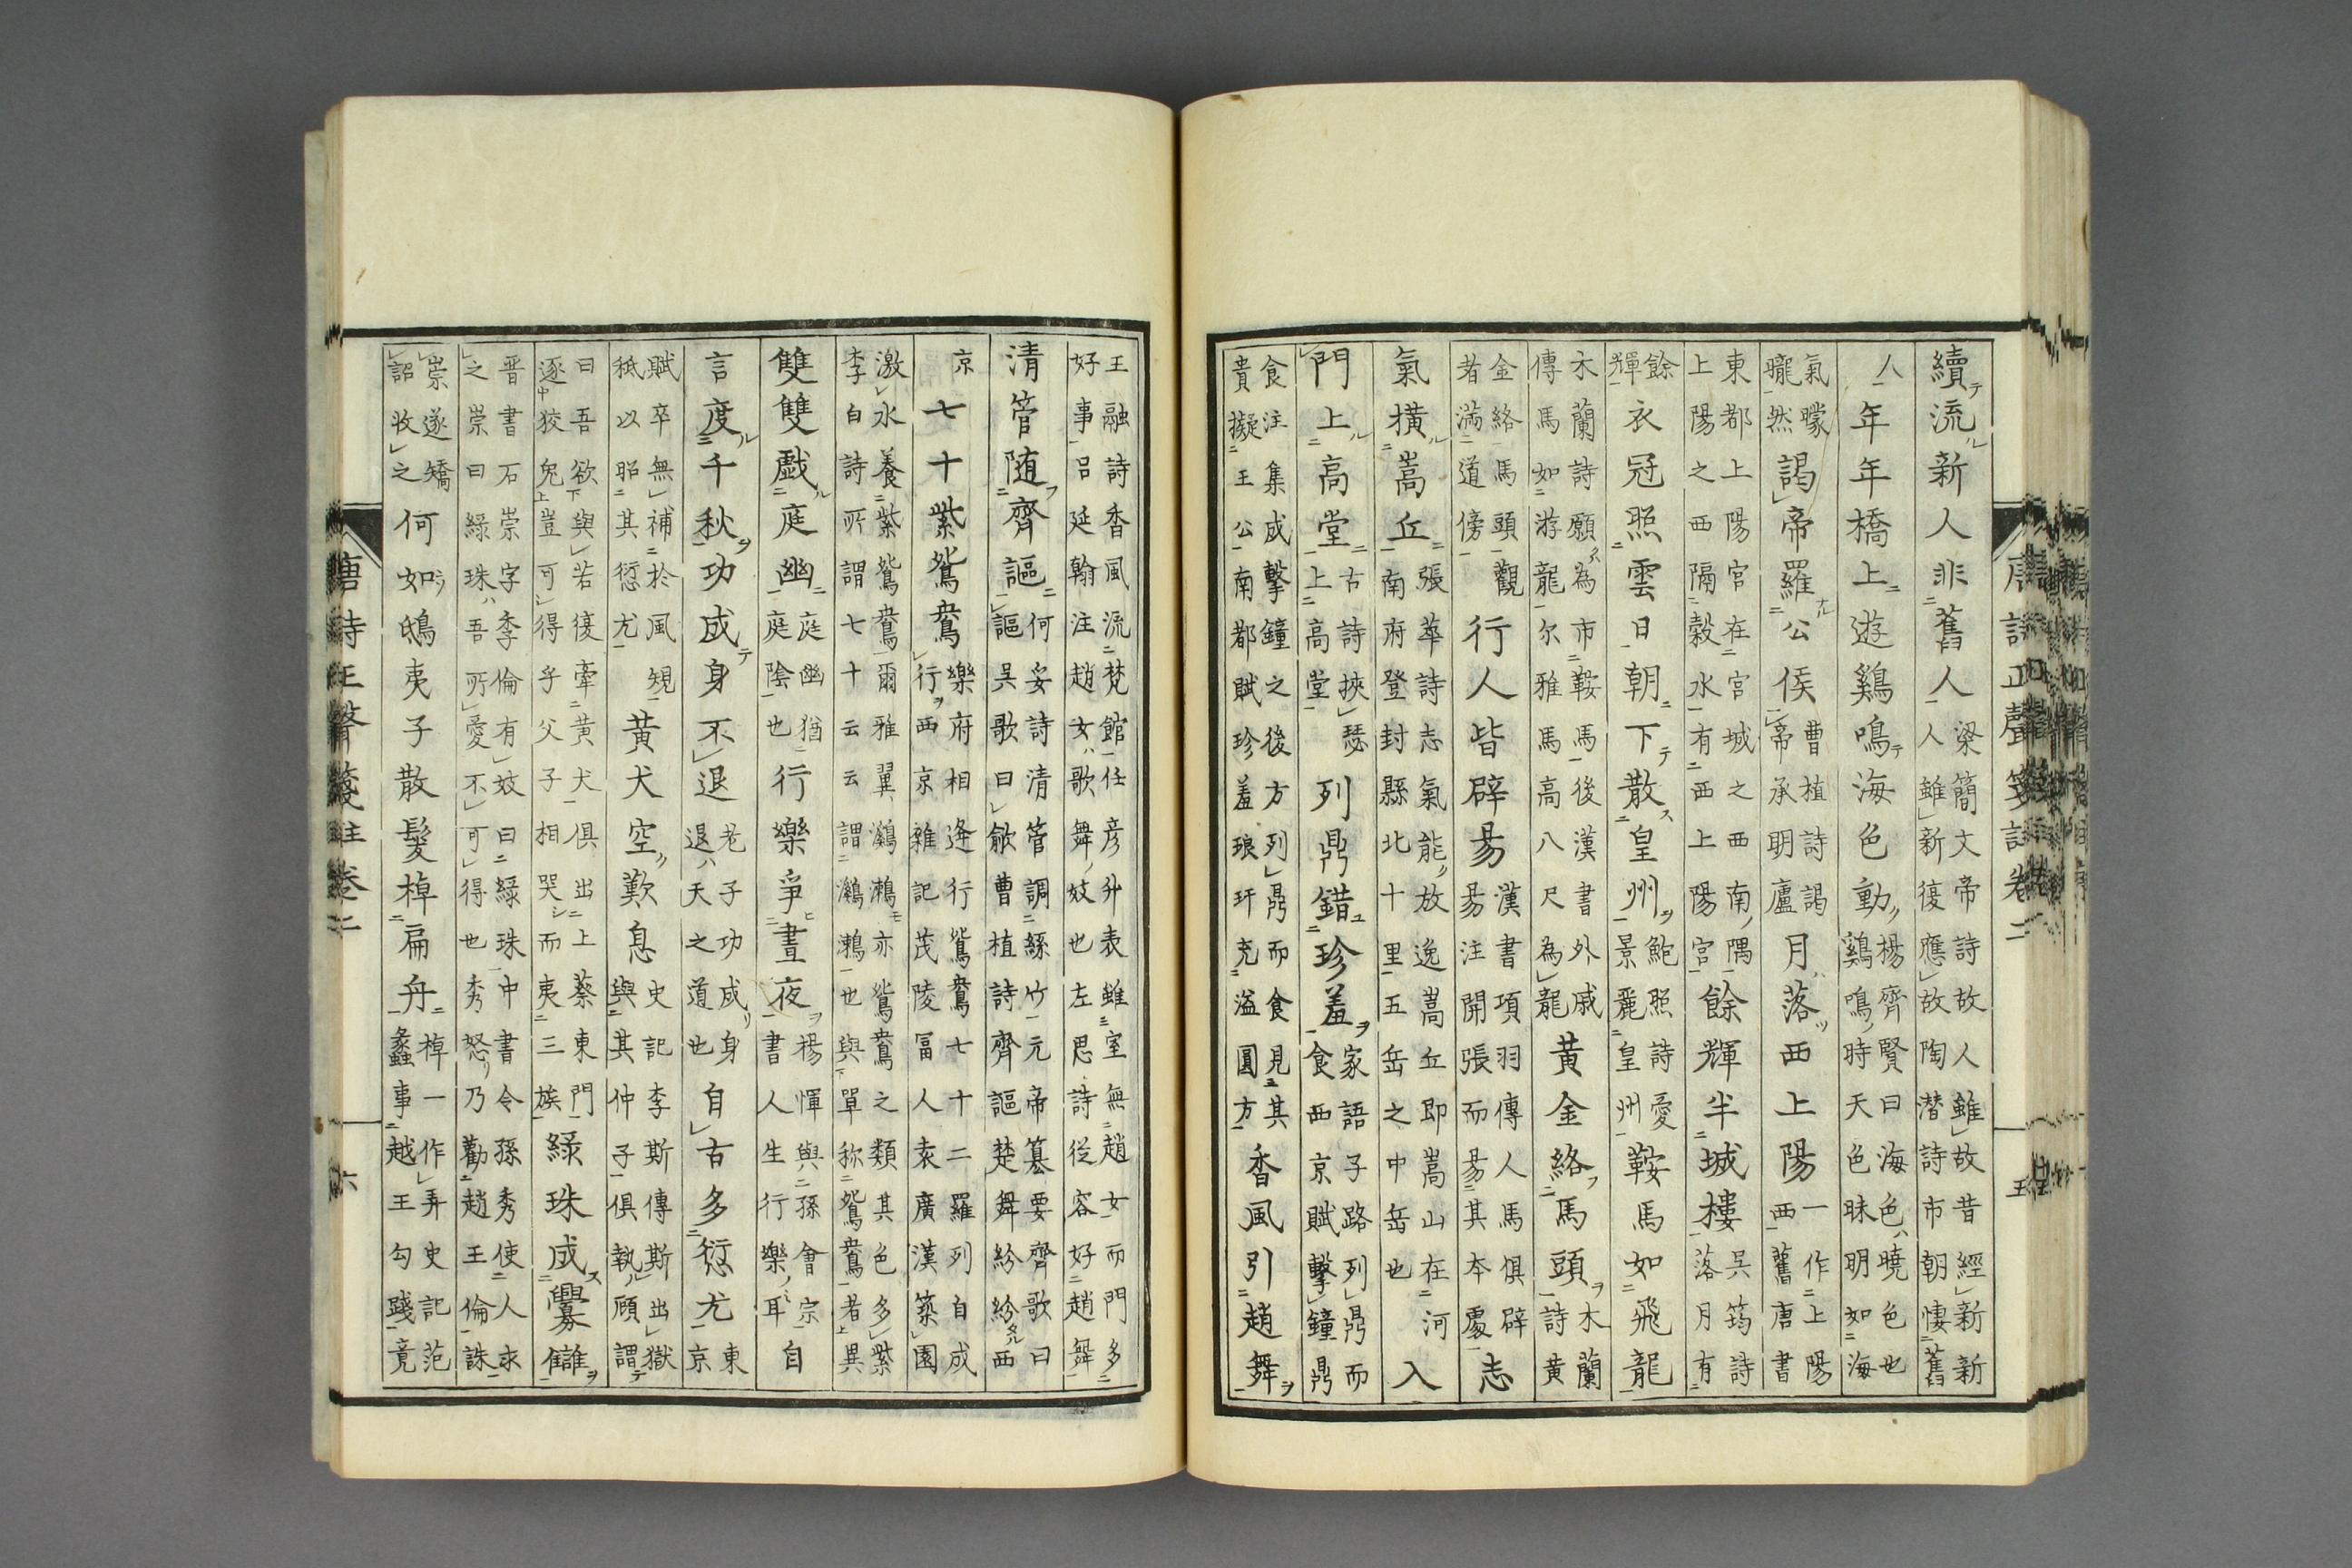 續流新人非舊人梁簡文帝詩故人雖故昔經新新人雖新復應故陶潜詩市朝悽舊
人年年橋上遊鷄鳴海色動楊齊賢曰海色曉色也鷄鳴時天色昧明如海
氣曚曨然謁帝羅公侯曹植詩謁帝承明廬月落西上陽一作上陽西舊唐書
東都上陽宮在宮城之西南隅上陽之西隔榖水有西上陽宮餘輝半城樓吳筠詩落月有
餘輝衣冠照雲日朝下散皇州鮑照詩愛景麗皇州鞍馬如飛龍
木蘭詩願為市鞍馬後漢書外戚傳馬如游龍尔雅馬高八尺為龍黄金絡馬頭木蘭詩黄
金絡馬頭觀者滿道傍行人皆辟易漢書項羽傳人馬俱辟易注開張而易其本處志
氣橫嵩丘張華詩志氣能放逸嵩丘即嵩山在河南府登封縣北十里五岳之中岳也入
門上高堂古詩挾瑟上高堂列鼎錯珍羞家語子路列鼎而食西京賦擊鐘鼎
食注集成擊鐘之後方列鼎而食見其貴擬王公南都賦珍羞琅玕充溢圓方香風引趙舞
王融詩香風流梵館任彦升表雖室無趙女而門多好事呂延翰注趙女歌舞妓也左思詩從容好趙舞
清管随齊謳何妥詩清管調絲竹元帝纂要齊歌曰謳吳歌曰歈曹植詩齊謳楚舞紛紛西
京七十紫鴛鴦樂府相逢行鴛鴦七十二羅列自成行西京雜記茂陵冨人袁廣漢築園
激水養紫鴛鴦爾雅翼鸂鶒亦鴛鴦之類其色多紫李白詩所謂七十云云謂鸂鶒也與單称鴛鴦者異
雙雙戯庭幽庭幽猶庭陰也行樂爭晝夜楊惲與孫會宗書人生行樂耳自
言度千秋功成身不退老子功成身退天之道也自古多愆尤東京
賦卒無補於風規秪以昭其愆尤黄犬空歎息史記李斯傳斯出獄與其仲子俱執顧謂
曰吾欲與若復牽黄犬俱出上蔡東門逐狡兔豈可得乎父子相哭而夷三族綠珠成釁讎
晋書石崇字季倫有妓曰綠珠中書令孫秀使人求之崇曰綠珠吾所愛不可得也秀怒乃勸趙王倫誅
崇遂矯詔收之何如鴟夷子散髮棹扁舟棹一作弄史記范蠡事越王勾踐竟
唐詩正聲箋註卷二 六